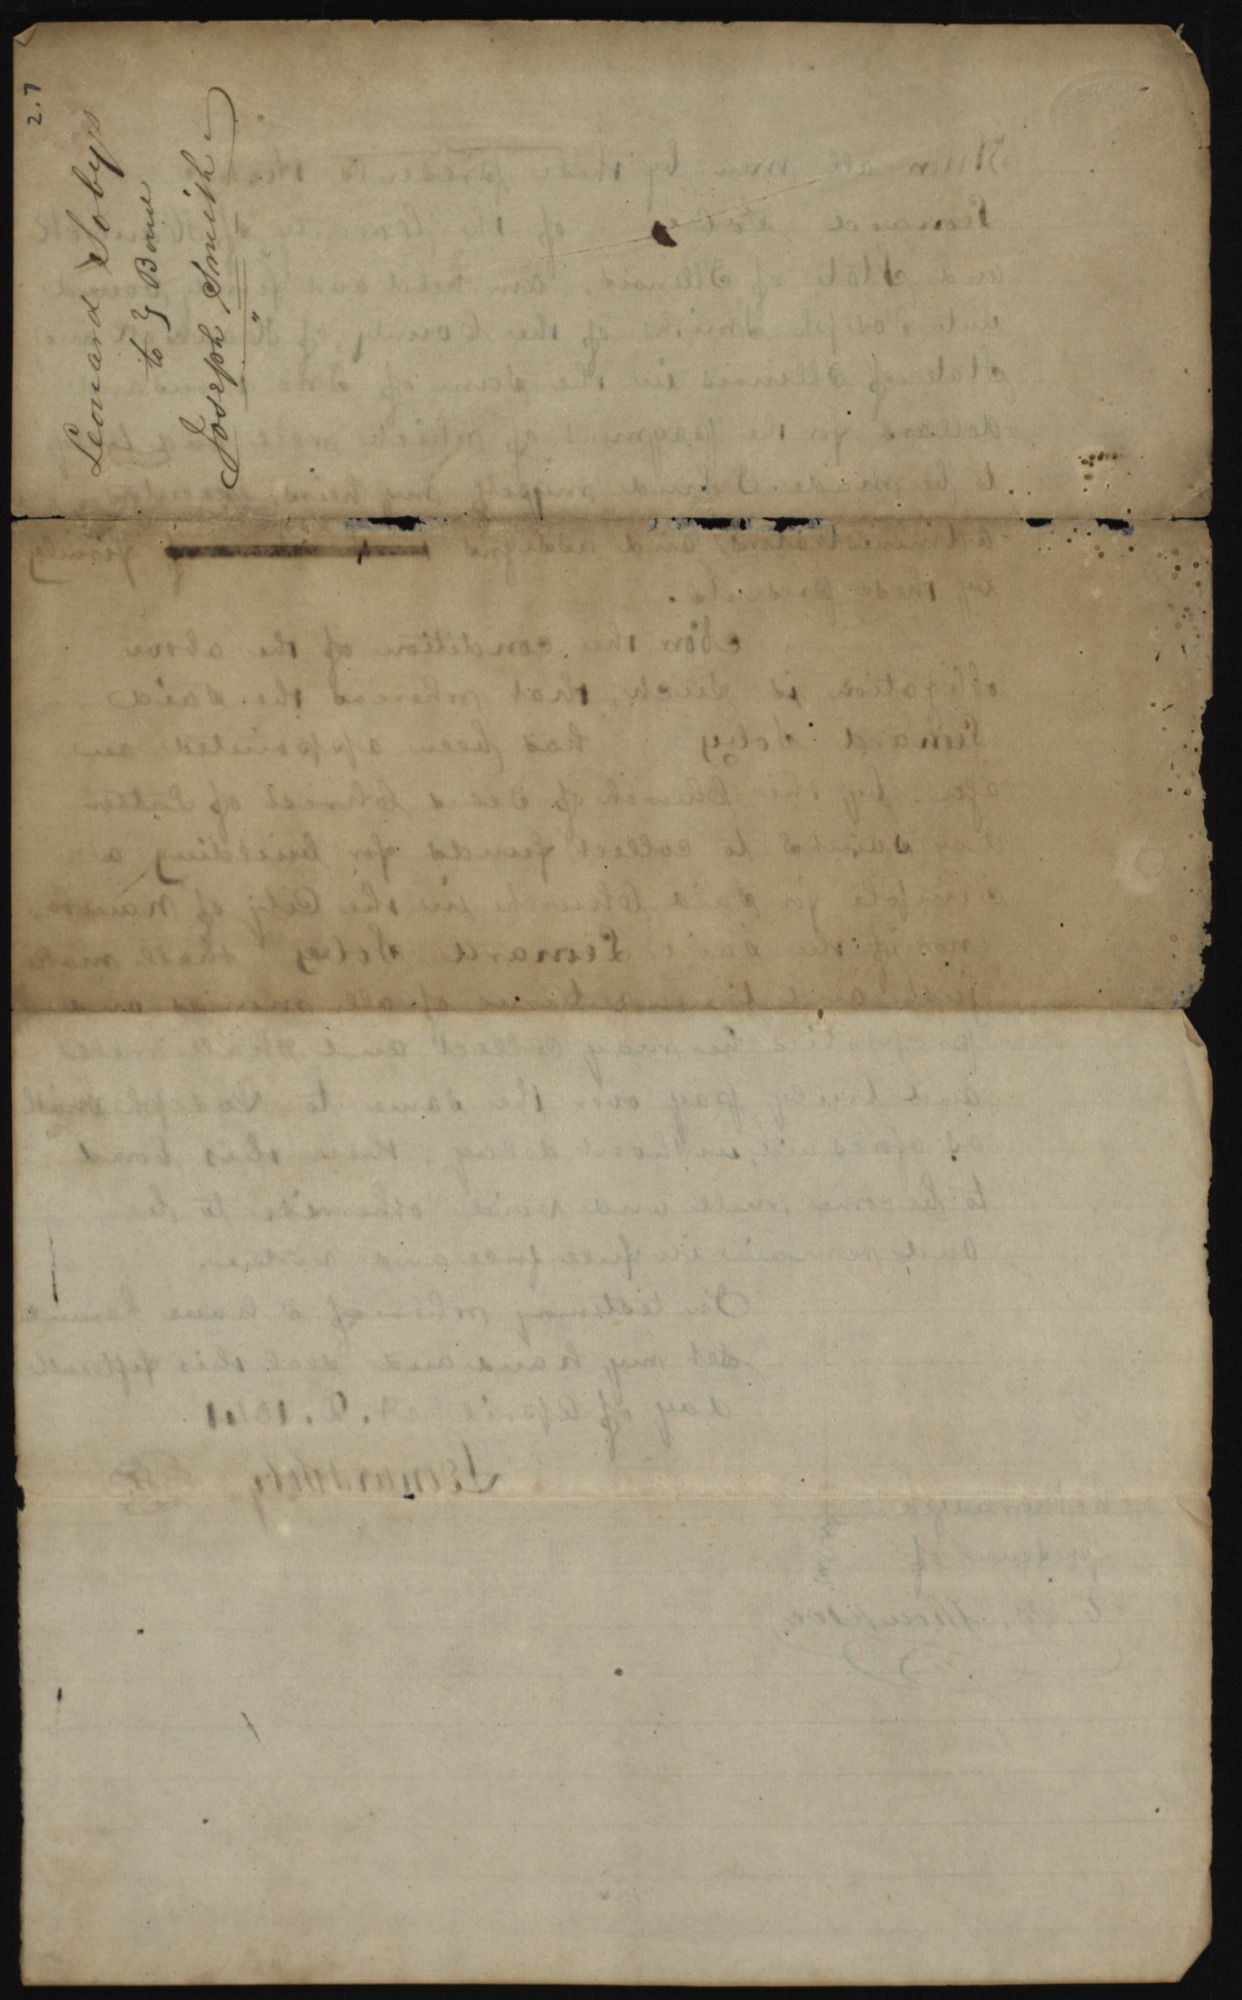 2.7
Leonard Sobys
to } Bond
Joseph Smith
Know all men by these presents that I
Leonard Soby of the County of Hancock
and State of Illinois, am held and firmly bound
unto Joseph Smith of the County of Hancock and
State of Illinois in the sum of two thousand
dollars for the payment of which well and truly
to be made I bind myself my heirs executors
administrators and assigns firmly
by these presents.
Now the condition of the above
obligation is such, that whereas the said
Leonard Soby has been appointed an
agent by the Church of Jesus Christ of Latter
day saints to collect funds for building a
temple for said Church in the City of Nauvoo.
Now if the said Leonard Soby shall make
just and true returns of all monies and
properties he may collect and shall well
and truly pay over the same to Joseph Smith
as aforesaid, without delay. then this bond
to become null and void otherwise to be
and remain in full force and virtue.
In testimony whereof I have hereunto
set my hand and seal this fifteenth
day of April A.D. 1841
Leonard Soby
presence of
R. B. Thompson